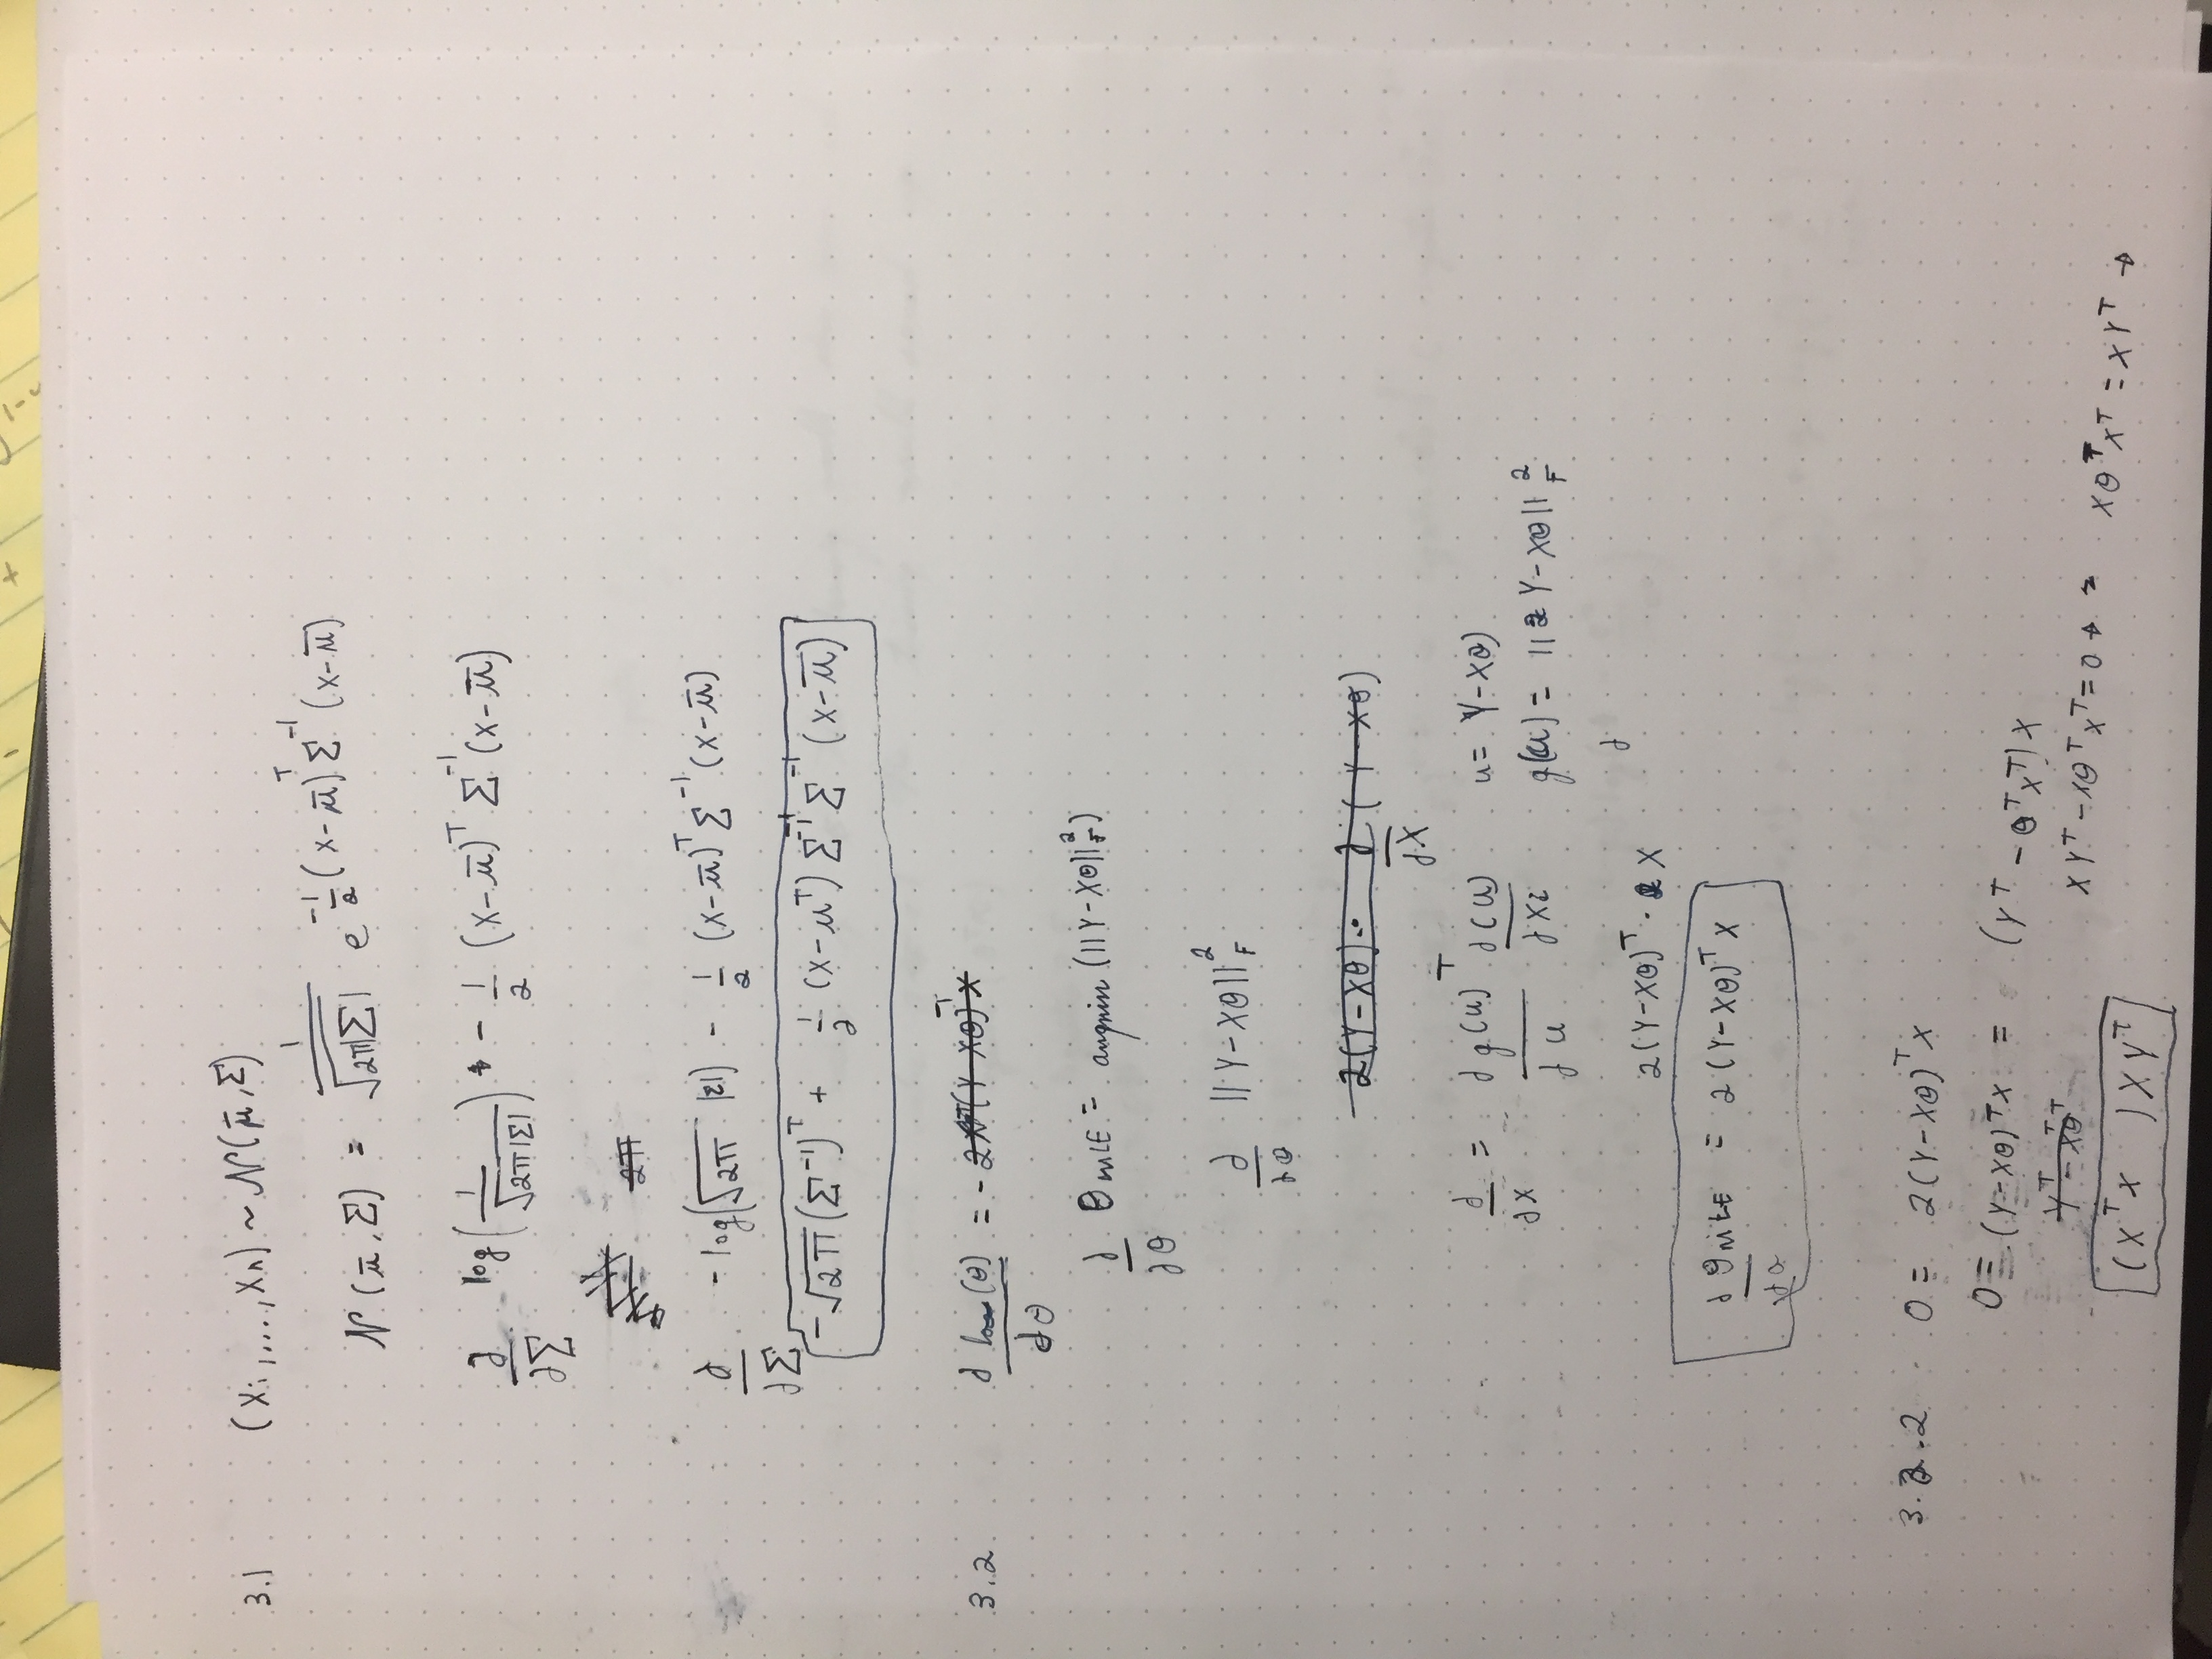 3.1 (Xi,...,Xn) ~ N(μ̄,Σ)
N(μ̄,Σ) = 1/√(2π|Σ|) e^(-1/2 (x-μ̄)^T Σ^-1 (x-μ̄))
∂/∂Σ log(1/√(2π|Σ|)) + - 1/2 (x-μ̄)^T Σ^-1 (x-μ̄)
2π
∂/∂Σ -log(√2π |Σ|) - 1/2 (x-μ̄)^T Σ^-1 (x-μ̄)
-√2π (Σ^-1)^T + 1/2 (x-μ^T) Σ^-1 Σ^-1 (x-μ̄)
3.2 ∂ loss(θ)/∂θ = - 2X^T(Y-Xθ)^T X
∂/∂θ θ MLE = argmin (||Y-Xθ||_F^2)
∂/∂θ ||Y-Xθ||_F^2
2(Y-Xθ) · ∂/∂X (Y-Xθ)
∂/∂X = ∂g(u)/∂u ^T ∂(u)/∂Xi u = Y-Xθ)
g(u) = ||2 Y-Xθ||_F^2
∂
2(Y-Xθ)^T · X
∂ θMLE/∂θ = 2(Y-Xθ)^T X
3.2.2 0 = 2(Y-Xθ)^T X
0 = (Y-Xθ)^T X = (Y^T - θ^T X^T) X
Y^T - Xθ^T^T
XY^T - Xθ^T X^T = 0 → = Xθ^T X^T = XY^T →
(X^T X ) X Y^T